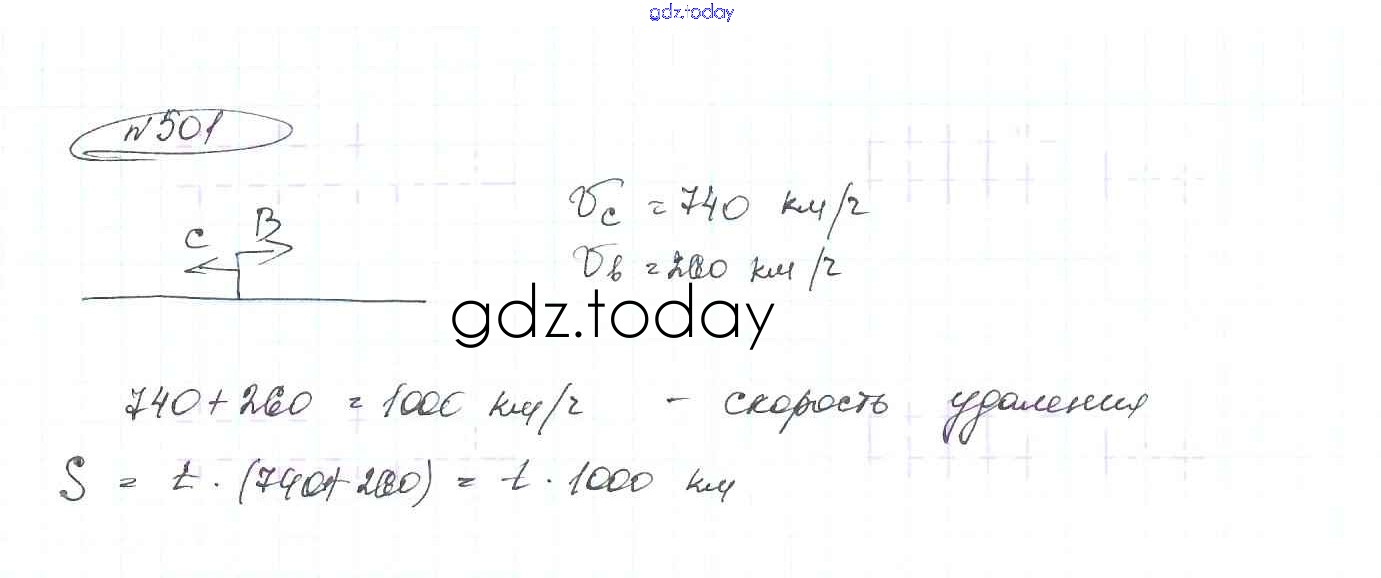 gdz.today
№501
С В
υс = 740 км/ч
υв = 260 км/ч
gdz.today
740 + 260 = 1000 км/ч - скорость удаления
S = t · (740 + 260) = t · 1000 км